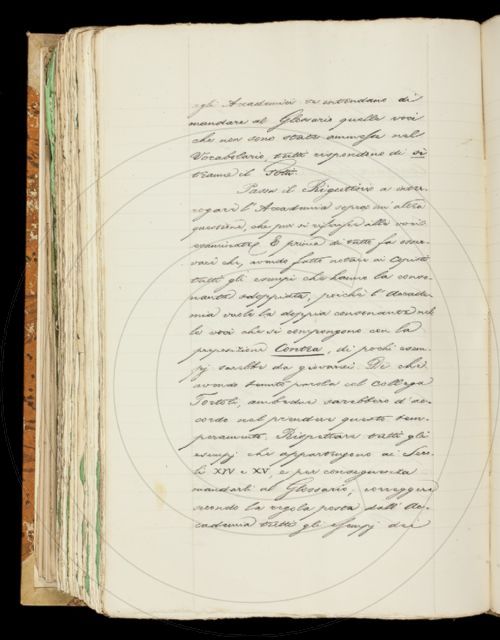 agli Accademici se intendano di
mandare al Glossario quelle voci
che non sono state ammesse nel
Vocabolario, tutti rispondono di sì
traune il Tolti.
Passa il Rigutini a inter-
rogare l'Accademia sopra un altra
questione, che pur si riferisce alle voci
esaminate. E prima di tutto fa osser-
vare che, avendo fatto notare ai Copisti
tutti gli esempi che hanno la conso-
nante addoppiata, poichè l'Accade-
mia vuole la doppia consonante nel-
le voci che si compongono con la
preposizione Contra, di pochi esem-
pj sarebbe da giovarsi. Di che
avendo tenuto parola col Collega
Tortoli, ambedue sarebbero d'ac-
cordo nel prendere questo tem-
peramento. Rispettare tutti gli
esempj che appartengono ai Seco-
li XIV e XV e per conseguenza
mandarli al Glossario; correggere
secondo la regola posta dall'Ac-
cademia tutti gli esempj dei